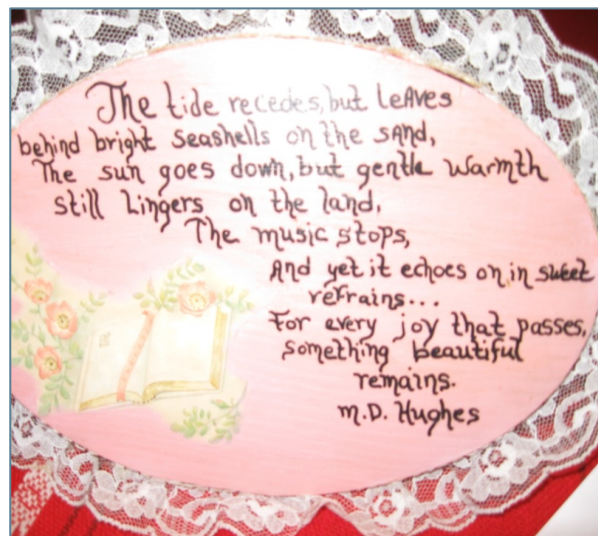 The tide recedes, but leAves
behind bright seashells on the sAnd,
The sun goes down, but gentle warmth
still Lingers on the land,
The music stops,
And yet it echoes on in sweet
refrains...
For every joy that passes,
something beautiful
remains.
M.D. Hughes